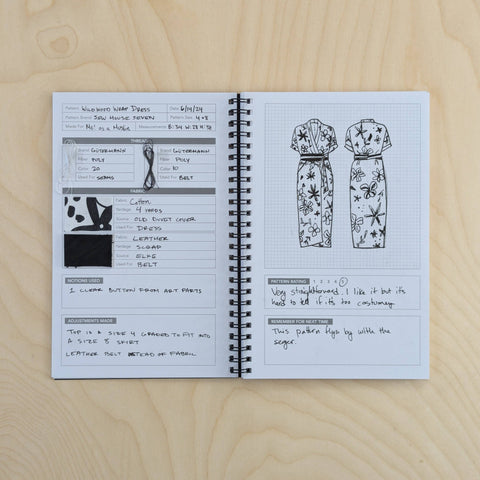 Pattern: WILDWOOD WRAP DRESS Date: 6/14/24
Pattern Brand: SEW HOUSE SEVEN Pattern Size: 4+8
Made For: ME! as a Measurements: B:34 W:28 H:38
THREAD
Brand: GÜTERMANN Brand: GÜTERMANN
Fiber: POLY Fiber: POLY
Color: 20 Color: 10
Used For: SEAMS Used For: BELT
FABRIC
Fabric: Cotton
Yardage: 4 YARDS
Source: OLD DUVET COVER
Used For: DRESS
Fabric: LEATHER
Yardage: SCRAP
Source: ELKE
Used For: BELT
NOTIONS USED
1 CLEAR BUTTON FROM ART PARTS
ADJUSTMENTS MADE
TOP IS A SIZE 4 GRADED TO FIT INTO
A SIZE 8 SKIRT
LEATHER BELT INSTEAD OF FABRIC
PATTERN RATING 1 2 3 4 5
Very straightforward. I like it but it's
hard to tell if it's too costumey.
REMEMBER FOR NEXT TIME
This pattern flys by with the
serger.